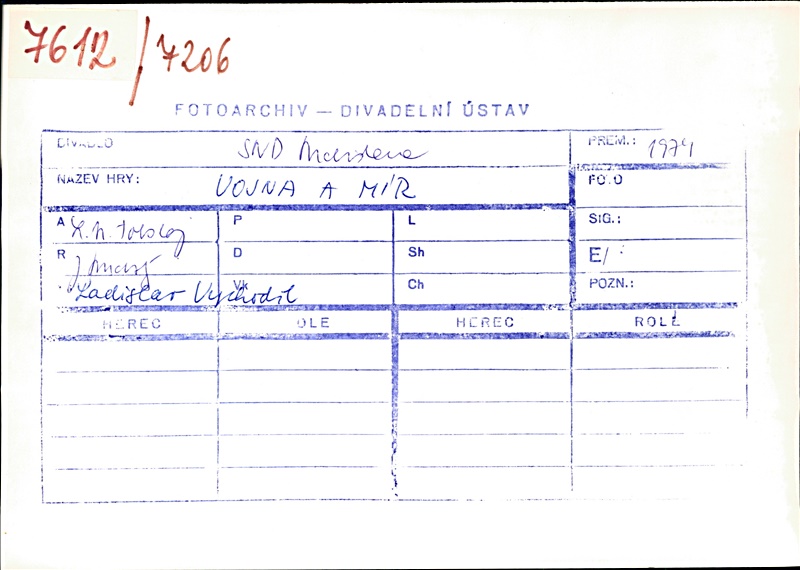 7612/7206
FOTOARCHIV — DIVADELNÍ ÚSTAV
DIVADLO SND Bratislava PREM.: 1974
NÁZEV HRY: VOJNA A MÍR FOTO
A L. N. Tolstoj P L SIG.:
R D Sh E/
Ladislav Vychodil Vk Ch POZN.:
HEREC ROLE HEREC ROLE